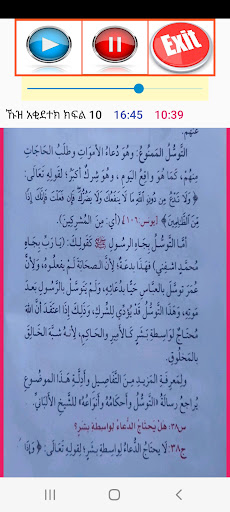 Exit
ኹዝ አቂደተክ ክፍል 10 16:45 10:39
عنهم.
التوسُّل الممنوع: وهو دعاء الأموات وطلب الحاجات
منهم، كما هو واقع اليوم، وهو شرك أكبر؛ لقوله تعالى:
﴿وَلَا تَدْعُ مِن دُونِ اللَّهِ مَا لَا يَنفَعُكَ وَلَا يَضُرُّكَ فَإِن فَعَلْتَ فَإِنَّكَ إِذًا
مِّنَ الظَّالِمِينَ﴾ [يونس: ١٠٦] (أي: من المشركين).
أمَّا التوسُّل بجاه الرسول ﷺ كقولك: (يا رب بجاه
محمد اشفني) فهذا بدعة؛ لأن الصحابة لم يفعلوه، ولأن
عمر توسَّل بالعباس حيًّا بدعائه، ولم يتوسَّل بالرسول بعد
موته، وهذا التوسُّل قد يؤدي للشرك، وذلك إذا اعتقد أن الله
محتاج لواسطة بشر كالأمير والحاكم، لأنه شبَّه الخالق
بالمخلوق.
ولمعرفة المزيد من التفاصيل وأدلة هذا الموضوع
يُراجع رسالة «التوسُّل وأحكامه وأنواعه» للشيخ الألباني.
س٣٨: هل يحتاج الدعاء لواسطة بشر؟
ج٣٨: لا يحتاج الدعاء لواسطة بشر؛ لقوله تعالى: ﴿وَإِذَا